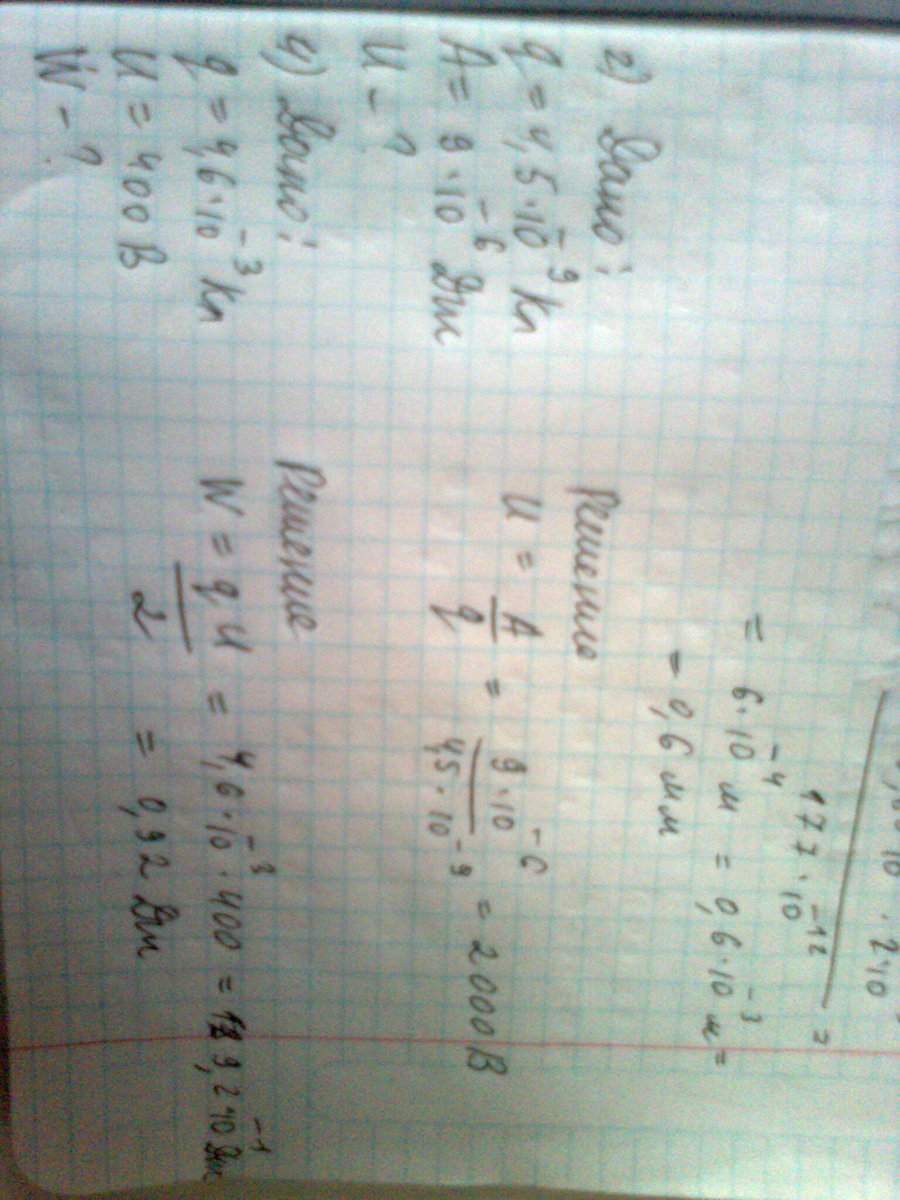 · 2·10
177·10⁻¹² =
= 6·10⁻⁴ м = 0,6·10⁻³ м =
= 0,6 мм
2) Дано:
q = 4,5·10⁻⁹ Кл
A = 9·10⁻⁶ Дж
U - ?
Решение
U = A/q = 9·10⁻⁶/4,5·10⁻⁹ = 2000 В
4) Дано:
q = 4,6·10⁻³ Кл
U = 400 В
W - ?
Решение
W = qU/2 = 4,6·10⁻³·400 = 9,2·10⁻¹ Дж
= 0,92 Дж